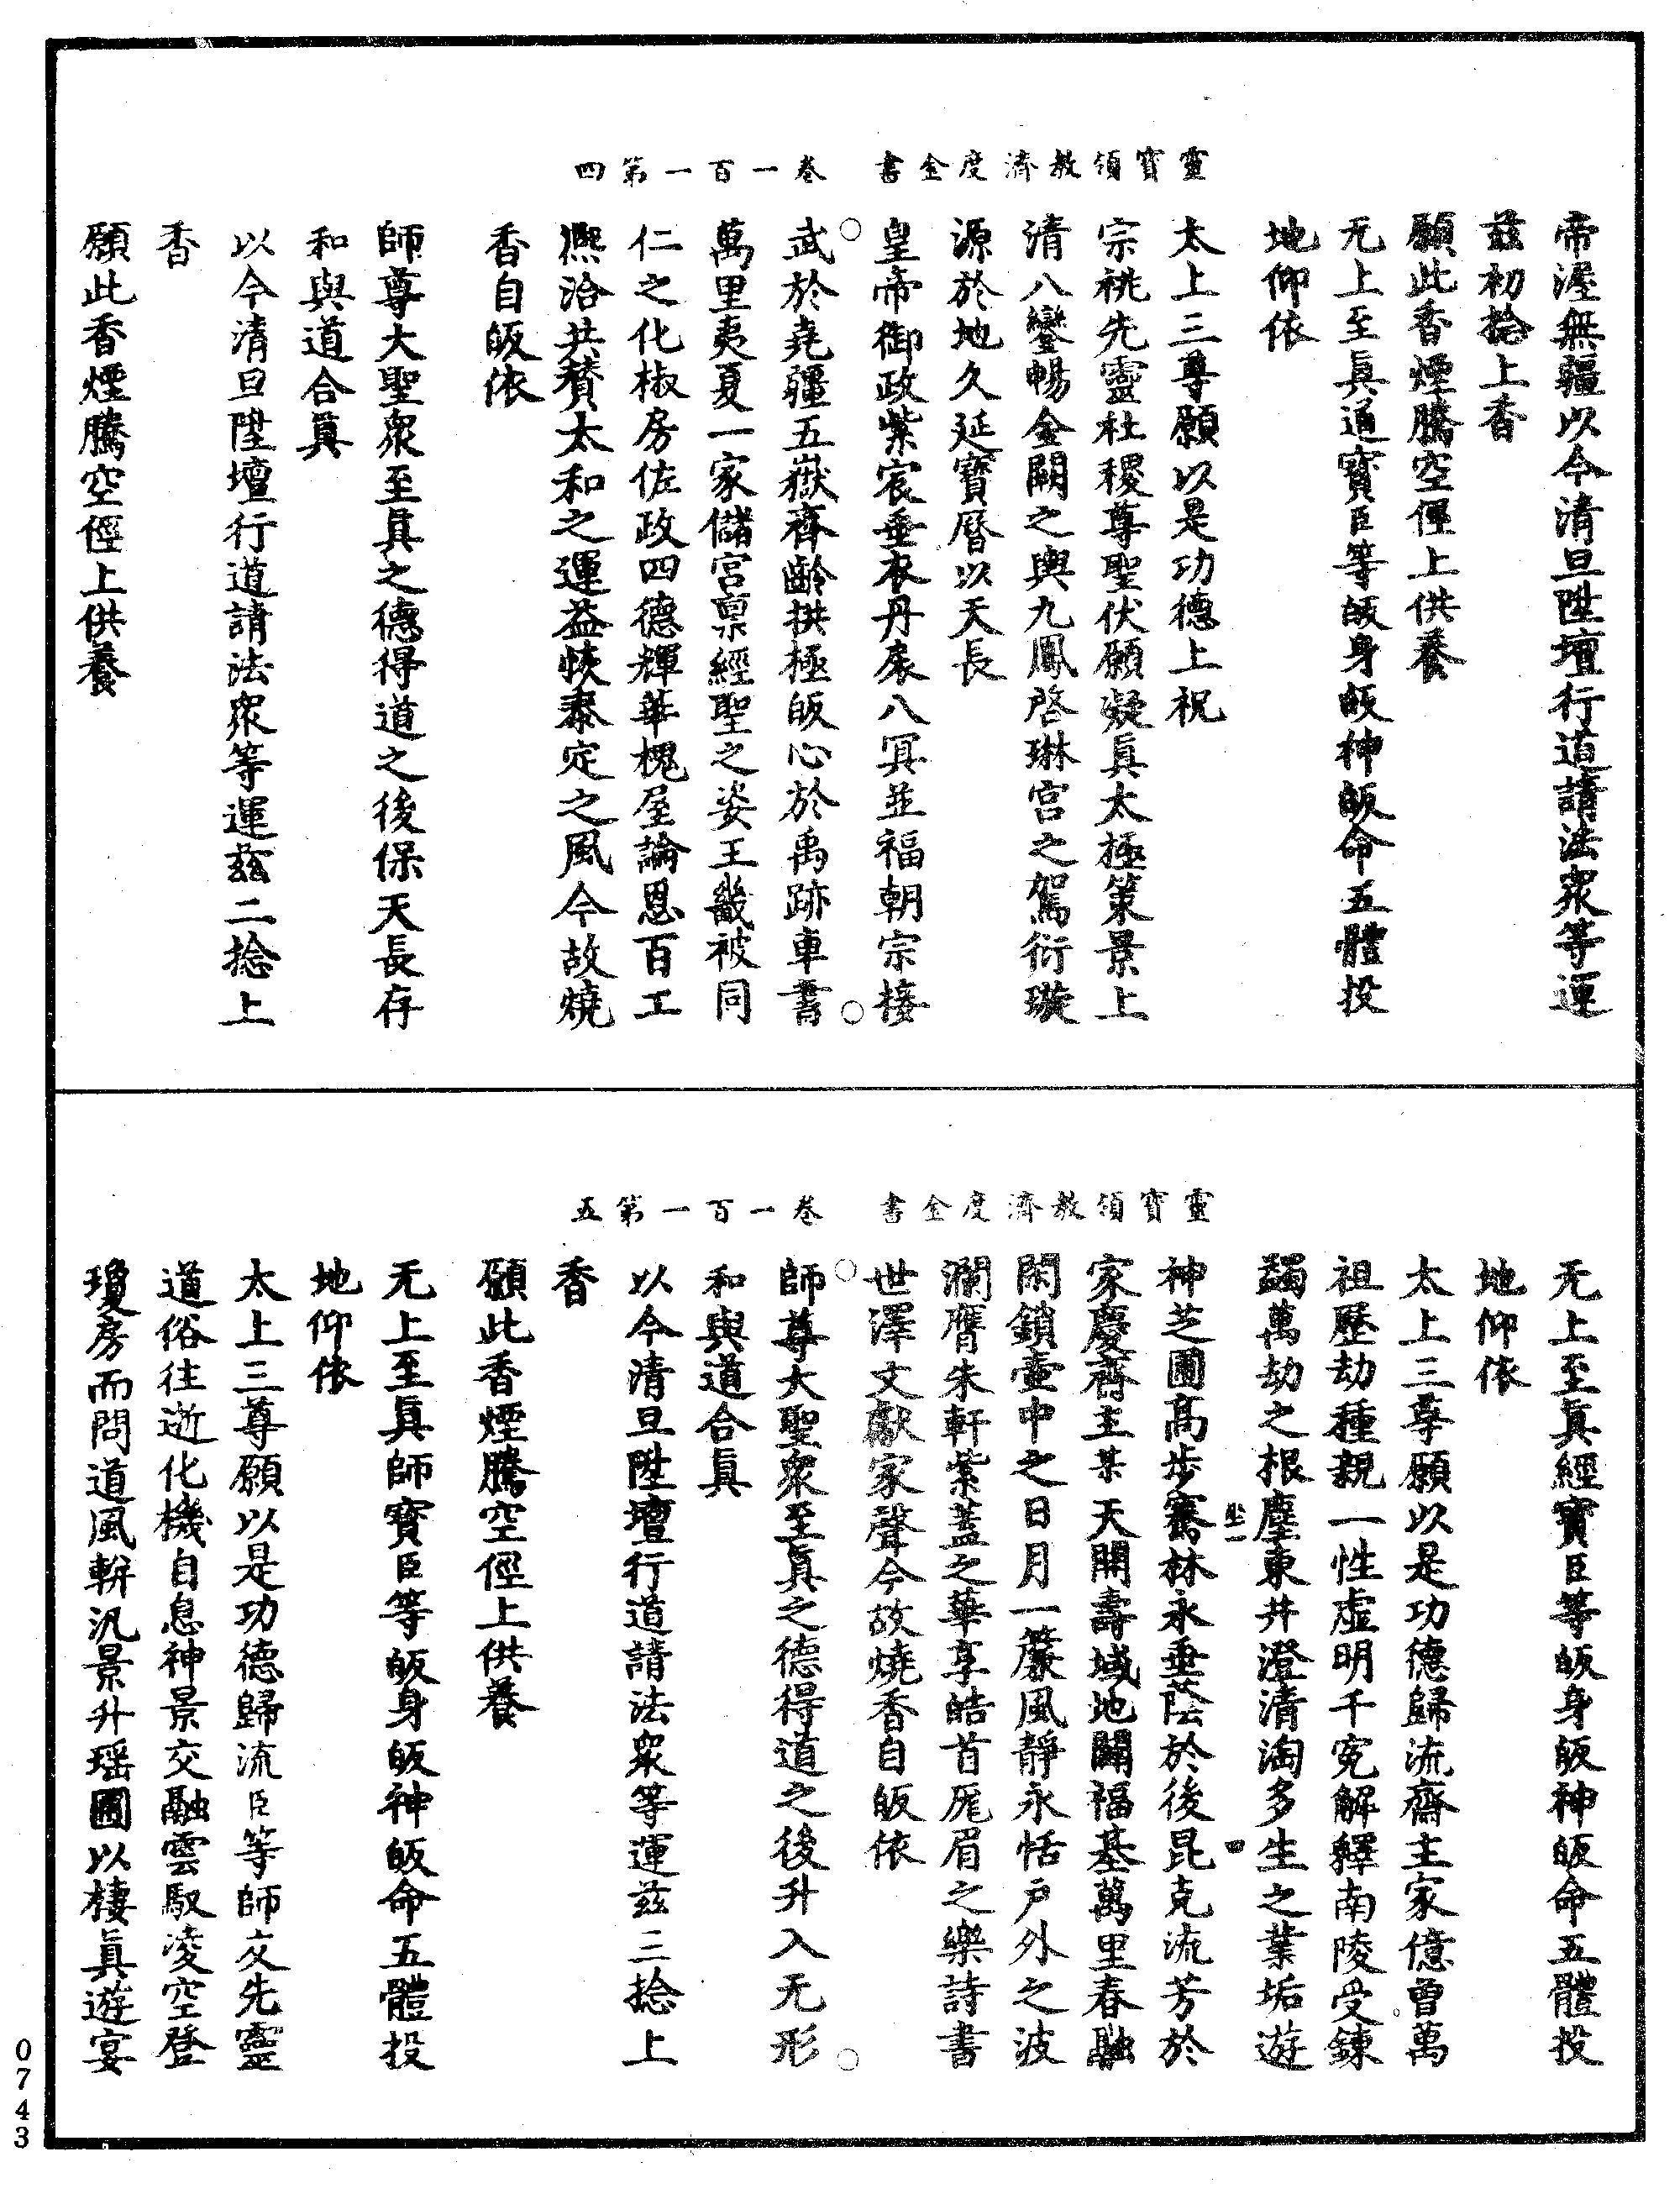 靈寶領教濟度金書　卷一百一第四
帝渥無疆以今清旦陞壇行道請法衆等運
兹初捻上香
願此香煙騰空徑上供養
无上至眞通寶臣等皈身皈神皈命五體投
地仰依
太上三尊願以是功德上祝
宗祧先靈社稷尊聖伏願凝眞太極策景上
清八鑾暢金闕之輿九鳳啓琳宮之駕衍璇
源於地久延寶曆以天長
皇帝御政紫宸垂衣丹扆八冥並福朝宗接
武於堯疆五嶽齊齡拱極皈心於禹跡車書
萬里夷夏一家儲宮禀經聖之姿王畿被同
仁之化椒房佐政四德輝華槐屋論恩百工
熈洽共賛太和之運益恢泰定之風今故燒
香自皈依
師尊大聖衆至眞之德得道之後保天長存
和與道合眞
以今清旦陞壇行道請法衆等運兹二捻上
香
願此香煙騰空徑上供養
靈寶領教濟度金書　卷一百一第五
无上至眞經寶臣等皈身皈神皈命五體投
地仰依
太上三尊願以是功德歸流齋主家億曾萬
祖歷劫種親一性虛明千寃解釋南陵受鍊
蠲萬劫之根塵東井澄清淘多生之業垢遊
神芝圃高步騫林永垂蔭於後昆克流芳於
家慶齋主某天開壽域地闢福基萬里春融
閑鎖壺中之日月一簾風靜永恬戶外之波
瀾膺朱軒紫蓋之華享皓首厖眉之樂詩書
世澤文獻家聲今故燒香自皈依
師尊大聖衆至眞之德得道之後升入无形
和與道合眞
以今清旦陞壇行道請法衆等運兹三捻上
香
願此香煙騰空徑上供養
无上至眞師寶臣等皈身皈神皈命五體投
地仰依
太上三尊願以是功德歸流臣等師友先靈
道俗往逝化機自息神景交融雲馭凌空登
瓊房而問道風軿汎景升瑶圃以棲眞遊宴
0743